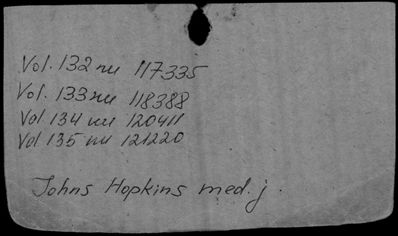 Vol. 132 nu 117335
Vol. 133 nu 118388
Vol 134 nu 120411
Vol 135 nu 121220
Johns Hopkins med. j.